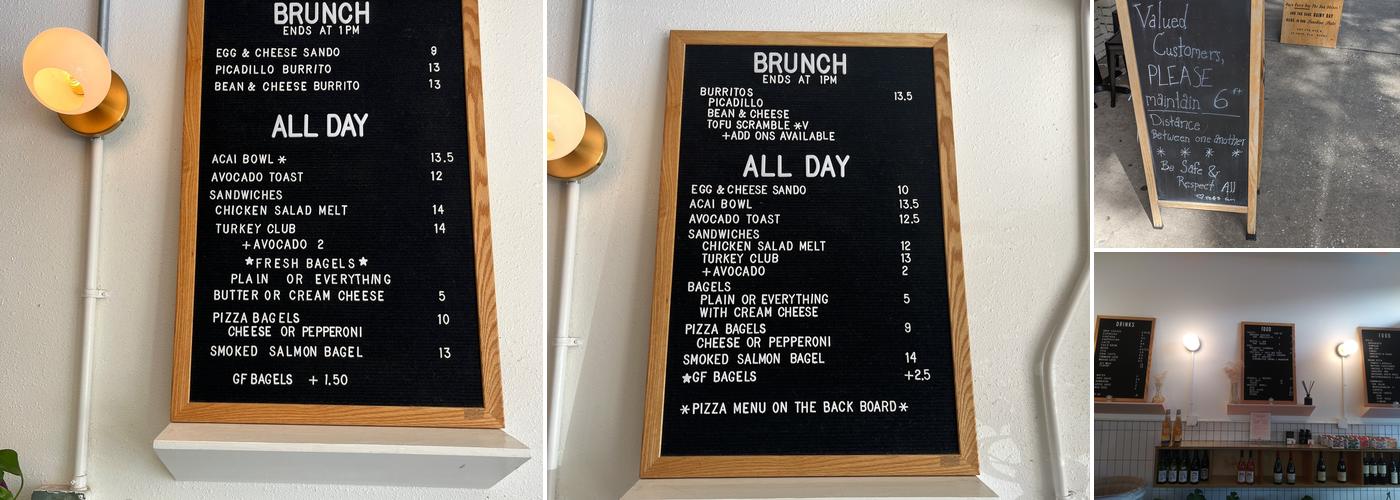 BRUNCH
ENDS AT 1PM
EGG & CHEESE SANDO 9
PICADILLO BURRITO 13
BEAN & CHEESE BURRITO 13
ALL DAY
ACAI BOWL * 13.5
AVOCADO TOAST 12
SANDWICHES
CHICKEN SALAD MELT 14
TURKEY CLUB 14
+AVOCADO 2
★FRESH BAGELS★
PLAIN OR EVERYTHING
BUTTER OR CREAM CHEESE 5
PIZZA BAGELS 10
CHEESE OR PEPPERONI
SMOKED SALMON BAGEL 13
GF BAGELS + 1.50
BRUNCH
ENDS AT 1PM
BURRITOS 13.5
PICADILLO
BEAN & CHEESE
TOFU SCRAMBLE *V
+ADD ONS AVAILABLE
ALL DAY
EGG & CHEESE SANDO 10
ACAI BOWL 13.5
AVOCADO TOAST 12.5
SANDWICHES
CHICKEN SALAD MELT 12
TURKEY CLUB 13
+AVOCADO 2
BAGELS
PLAIN OR EVERYTHING 5
WITH CREAM CHEESE
PIZZA BAGELS 9
CHEESE OR PEPPERONI
SMOKED SALMON BAGEL 14
★GF BAGELS +2.5
*PIZZA MENU ON THE BACK BOARD*
Valued
Customers,
PLEASE
maintain 6 ft
Distance
Between one another
* * * *
Be Safe &
Respect All
DRINKS
FOOD
FOOD